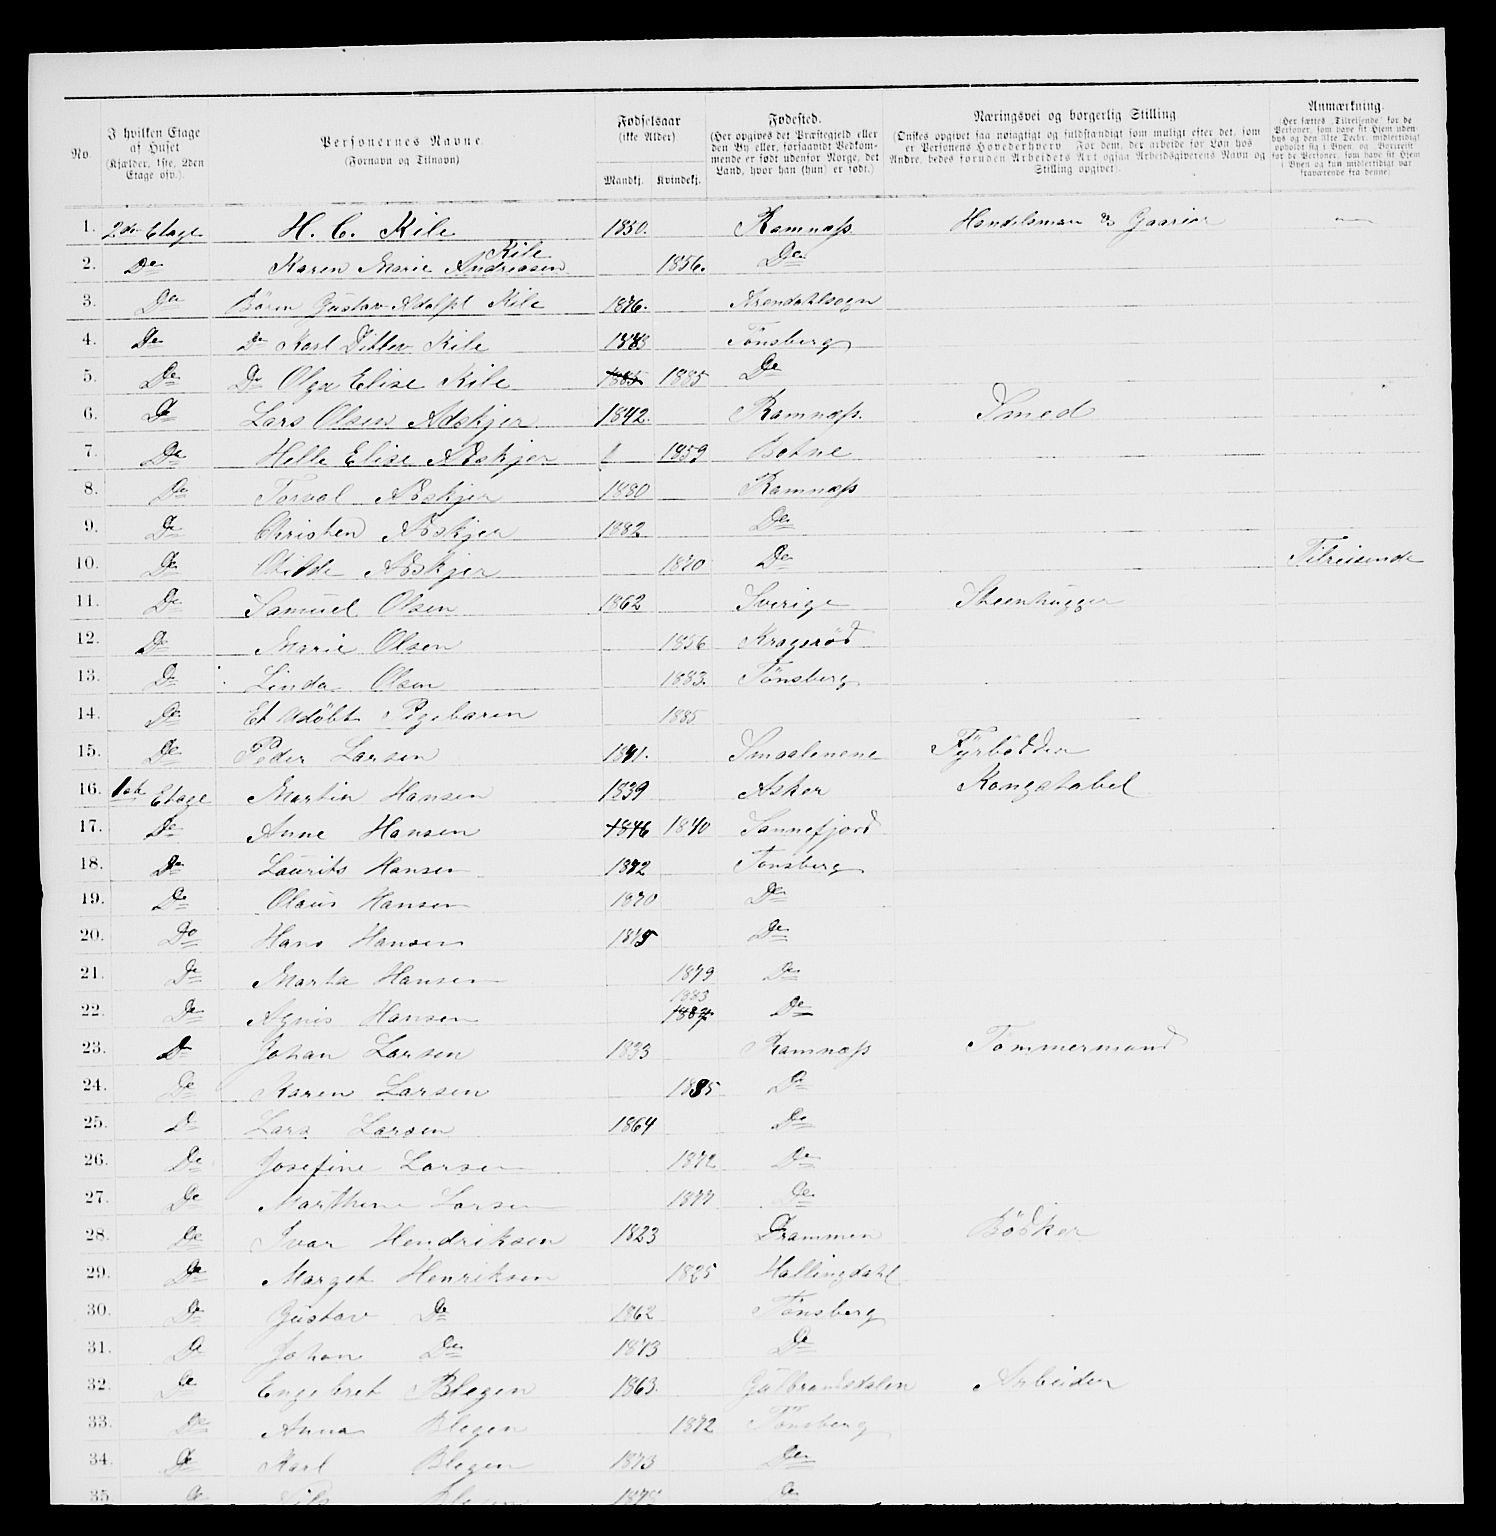 No.
I hvilken Etage af Huset (Kjælder, 1ste, 2den Etage osv.).
Personernes Navne. (Fornavn og Tilnavn)
Fødselsaar (ikke Alder) Mandkj. Kvindekj.
Fødested. (Her opgives det Præstegjeld eller den By eller, forsaavidt Vedkommende er født udenfor Norge, det Land, hvor han (hun) er født.)
Næringsvei og borgerlig Stilling (Ønskes opgivet saa nøiagtigt og fuldstændigt som muligt efter det, som er Personens Hovederhverv. For dem, der arbeide for Løn hos Andre, bedes foruden Arbeidets Art ogsaa Arbeidsgiverens Navn og Stilling opgivet).
Anmærkning. (Her sættes „Tilreisende" for de Personer, som have sit Hjem udenbys og den 31te Decbr. midlertidigt opholdt sig i Byen, og „Bortreist" for de Personer, som have sit Hjem i Byen og kun midlertidigt var fraværende fra denne).
1. 2den Etage H. C. Kile 1850. Ramnæss Handelsman & —
2. Do Karen Marie Andreasen Kile 1856. Do
3. Do Børn Gustav Adolf Kile 1876. Arendahlsogn
4. Do Do Karl Ditlev Kile 1883 Tønsberg
5. Do Do Olga Elise Kile 1885 1885 Do
6. Do Lars Olsen Adskjer 1842. Ramnæss Smed
7. Do Helle Elise Adskjer 1859 Botne
8. Do Torval Adskjer 1880 Ramnæss
9. Do Christen Adskjer 1882 Do
10. Do Adskjer 1870 Do Tilreisende
11. Do Samuel Olsen 1862 Sverige Steenhugger
12. Do Marie Olsen 1856 Kragerød
13. Do Linda Olsen 1883. Tønsberg
14. Do Et Udøbt Pigebaren 1885
15. Do Peder Larsen 1841. Smaalenene Fyrbødder
16. 1ste Etage Martin Hansen 1839 Asker Kongstabel
17. Do Anne Hansen 1846 1840 Sannefjord
18. Do Laurits Hansen 1872 Tønsberg
19. Do Olaus Hansen 1870 Do
20. Do Hans Hansen 1875 Do
21. Do Marta Hansen 1879 Do
22. Do Agnis Hansen 1883 Do
23. Do Johan Larsen 1833 Ramnæss Tømmermand
24. Do Karen Larsen 1835 Do
25. Do Lars Larsen 1864 Do
26. Do Josefine Larsen 1872 Do
27. Do Marthine Larsen 1877 Do
28. Do Ivar Hendriksen 1823 Drammen Bødker
29. Do Marget Henriksen 1825 Hallingdahl
30. Do Gustav Do 1862 Tønsberg
31. Do Johan Do 1873 Do
32. Do Engebret Blegen 1863. Gulbrandsdalen Arbeider
33. Do Anna Blegen 1872 Tønsberg
34. Do Karl Blegen 1873 Do
35. Do Blegen 1878 Do